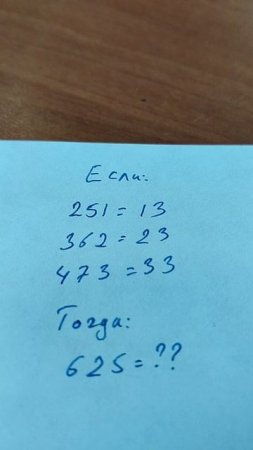 Если:
251 = 13
362 = 23
473 = 33
Тогда:
625 = ??